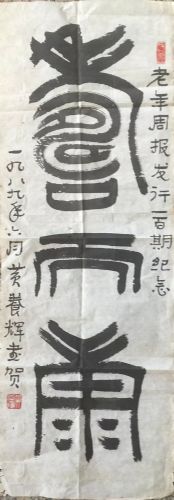 老年周报发行一百期纪念
壽而康
一九八九年六月黄養辉書贺